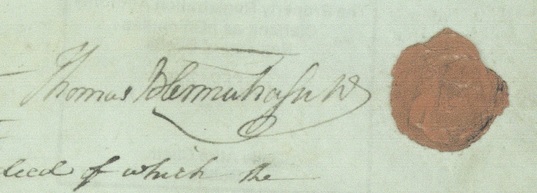 Thomas Blennerhassett
deed of which the